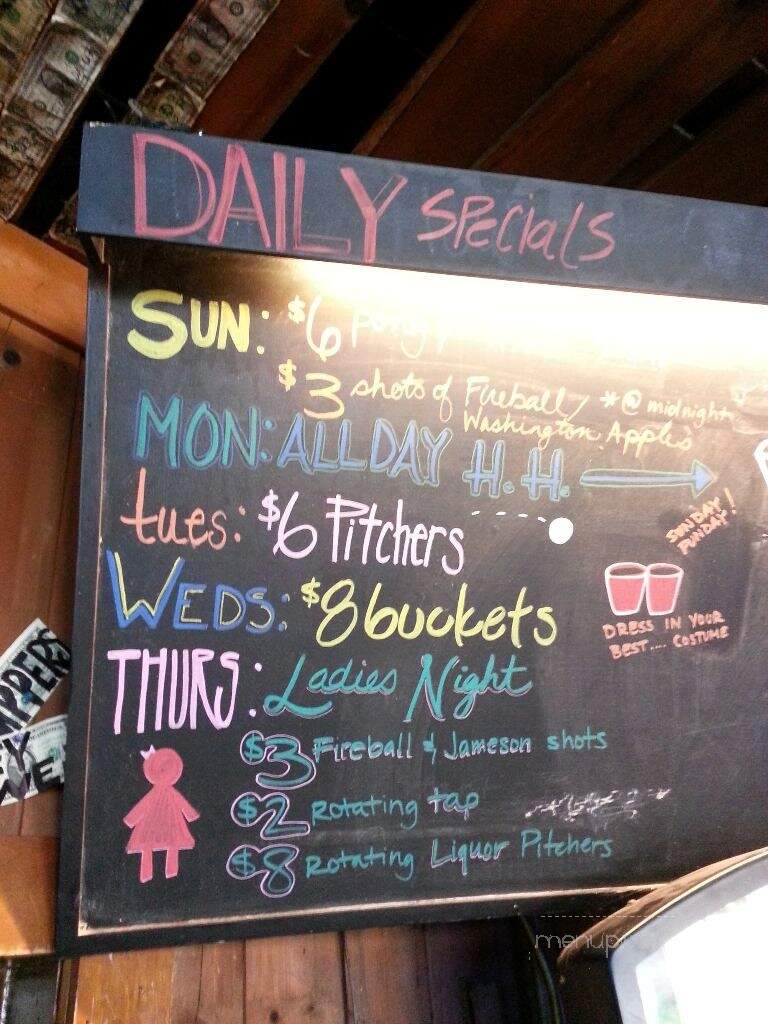 DAILY SPecialS
SUN: $6 Pong
$3 shots of Fireball/ *@ midnight
Washington Apples
MON: ALL DAY H.H.
tues: $6 Pitchers
SUNDAY!
FUNDAY!
WEDS: $8 buckets
DRESS IN YOUR
BEST.... COSTUME
THURS: Ladies Night
$3 Fireball & Jameson shots
$2 Rotating tap
$8 Rotating Liquor Pitchers